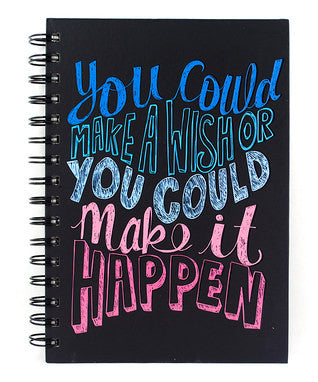 You Could
MAKE A WISH OR
YOU COULD
Make it
HAPPEN